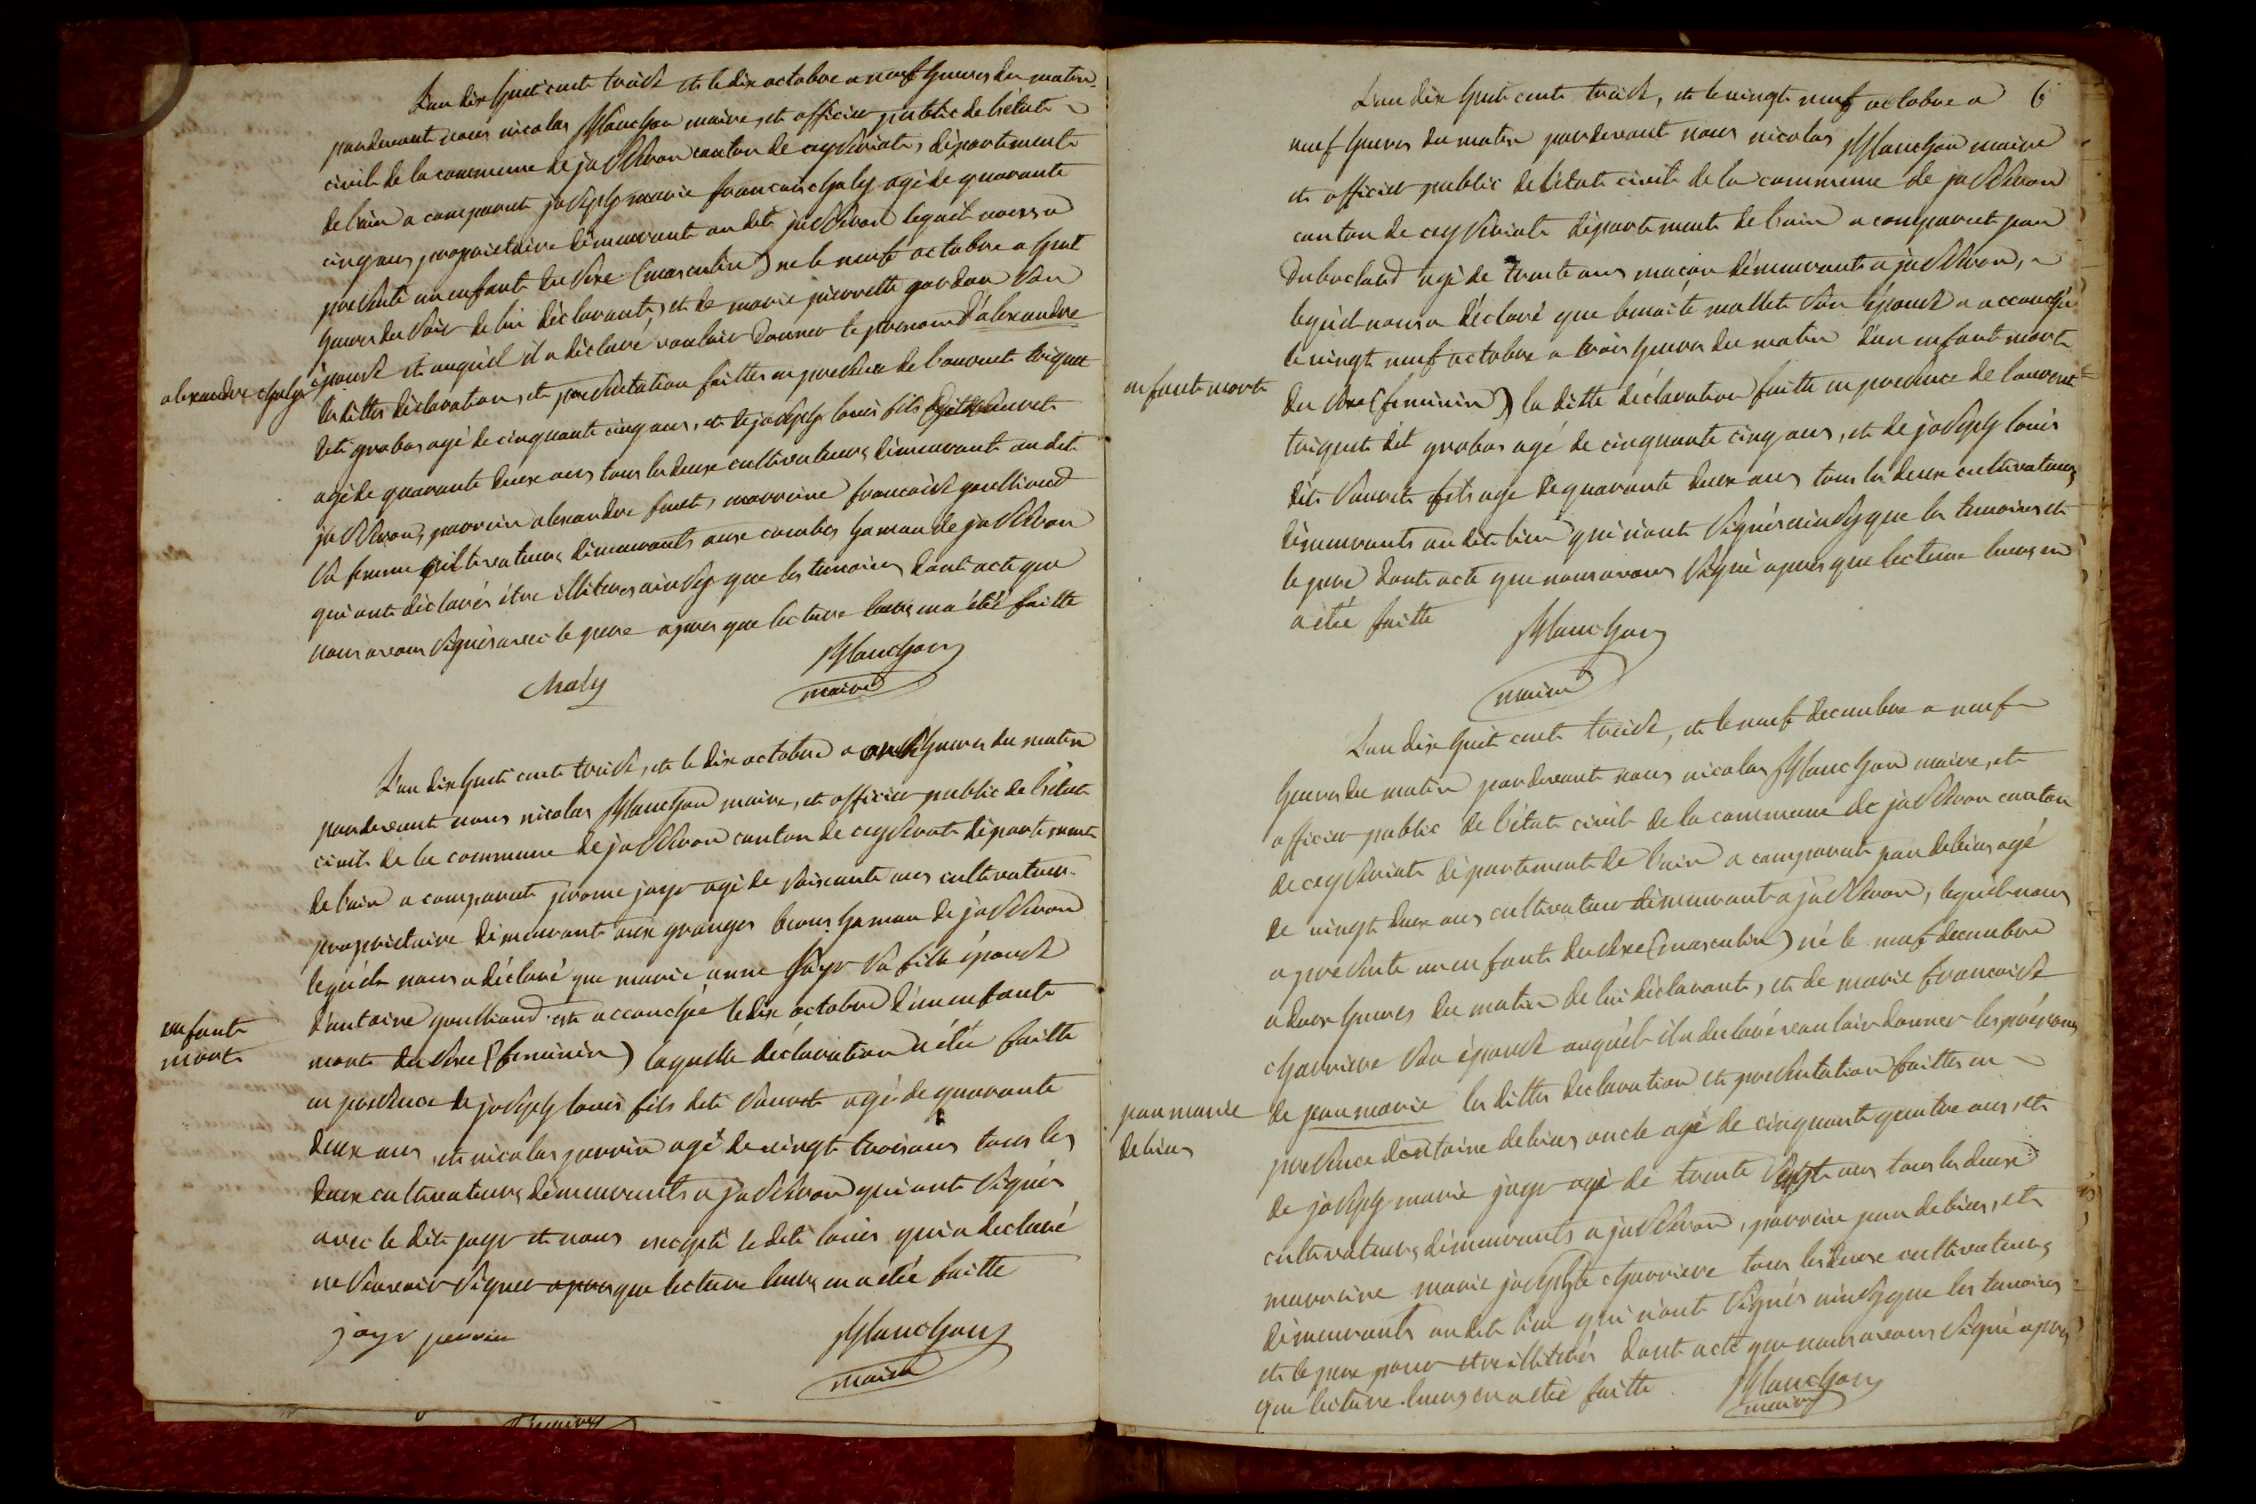 L'an dix huit cent treise et le dix octobre a neuf heures du matin
pardevant nous nicolas Planchon maire, et officier public de l'état
civil de la commune de jasseron canton de ceyseriat, département
de l'ain a comparut joseph marie francois chaly agé de quarante
cinq ans, proprietaire démeurant au dit jasseron lequel nous a
presenté un enfant du sexe (masculin) né le neuf octobre a huit
heures du soir de lui déclarant, et de marie pierrette gordon son
épouse et auquel il a déclaré vouloir donner le prenom d'alexandre
alexandre chaly
les dittes déclaration, et presentation faittes en presence de laurent triquet
dit grobas agé de cinquante cinq ans, et de joseph louis fils dit sauret
agé de quarante deux ans tous les deux cultivateurs démeurant au dit
jasseron, parrein alexandre finet, marreine francoise goullioud
sa femme cultivateurs démeurants aux combes hamau de jasseron
qui ont déclarés être illiterés ainsy que les temoins dont acte que
nous avons signés avec le pere apres que lecture leurs en a étée faitte
chaly
Planchon
maire
L'an dix huit cent treise, et le dix octobre a onse heures du matin
pardevant nous nicolas Planchon maire, et officier public de l'état
civil de la commune de jasseron canton de ceyseriat département
de l'ain a comparut jerome jayr agé de soixante ans cultivateur
proprietaire démeurant aux granges hamau de jasseron
lequel nous a déclaré que marie anne jayr sa fille épouse
d'antoine goullioud est accouchée le dix octobre d'un enfant
enfant
mort
mort du sexe (feminin) laquelle déclaration a étée faitte
en presence de joseph louis fils dit sauret agé de quarante
deux ans, et nicolas perrin agé de vingt trois ans tous les
deux cultivateurs démeurants a jasseron qui ont signés
avec le dit jayr et nous excepté le dit louis qui a declaré
ne savoir signer apres que lecture leurs en a étée faitte
jayr perrin
Planchon
maire
6
L'an dix huit cent treise, et le vingt neuf octobre a
neuf heures du matin pardevant nous nicolas Planchon maire
et officier public de l'état civil de la commune de jasseron
canton de ceyseriat département de l'ain a comparut jean
dubochard agé de trente ans maçon démeurant a jasseron,
lequel nous a déclaré que benoite mallet son épouse a accouchée
le vingt neuf octobre a trois heures du matin d'un enfant mort
enfant mort
du sexe (feminin) la ditte déclaration faitte en presence de laurent
triquet dit grobas agé de cinquante cinq ans, et de joseph louis
dit sauret fils agé de quarante deux ans tous les deux cultivateurs
démeurants au dit lieu qui n'ont signés ainsy que les temoins et
le pere dont acte que nous avons signé apres que lecture leurs en
a étée faitte
Planchon
maire
L'an dix huit cent treise, et le neuf decembre a neuf
heures du matin pardevant nous nicolas Planchon maire, et
officier public de l'état civil de la commune de jasseron canton
de ceyseriat département de l'ain a comparut jean debias agé
de vingt deux ans cultivateur démeurant a jasseron, lequel nous
a presenté un enfant du sexe (masculin) né le neuf decembre
a deux heures du matin de lui déclarant, et de marie francoise
charriere son épouse auquel il a declaré vouloir donner les prénoms
jean marie
debias
de jean marie les dittes declaration et presentation faittes en
presence d'antoine debias oncle agé de cinquante quatre ans, et
de joseph marie jayr agé de trente sept ans tous les deux
cultivateurs démeurants a jasseron, parrein jean debias, et
marreine marie josephte charriere tous les deux cultivateurs
démeurants au dit lieu qui n'ont signés ainsy que les temoins
et le pere pour etre illiterés dont acte que nous avons signé apres
que lecture leurs en a étée faitte.
Planchon
maire